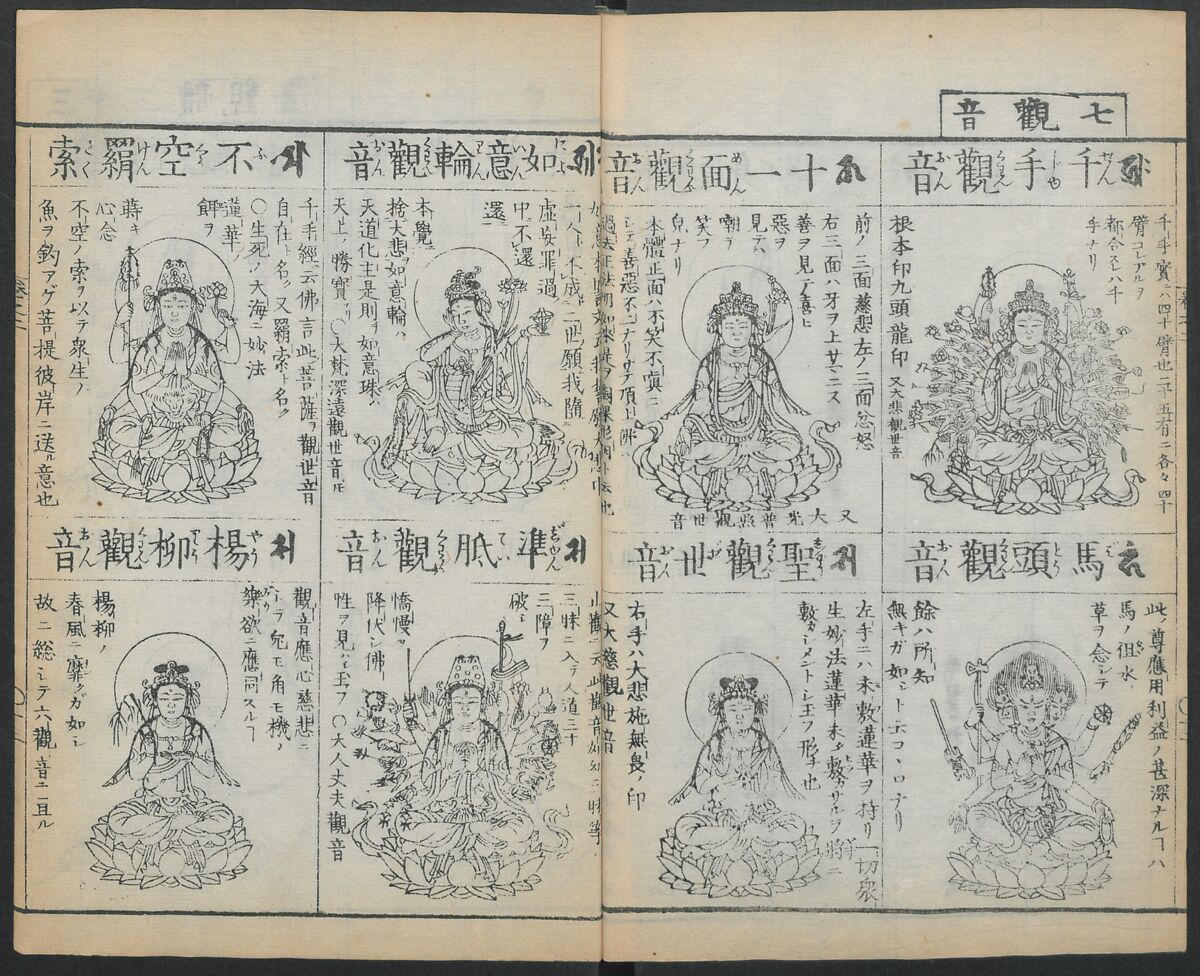 七觀音
千手觀音
千手實ニハ四十臂也二十五有ニ各々四十
臂コレアルヲ
都合スレハ千
手ナリ
根本印九頭龍印 又大悲觀世音
馬頭觀音
此ノ尊應用利益ノ甚深ナルヿハ
馬ノ但水
草ヲ念シテ
餘ハ所知
無キガ如シ
十一面觀音
前ノ三面慈悲左ノ三面忿怒
右三面ハ牙ヲ上
善ヲ見テ喜ヒ
惡ヲ
見テハ
嘲テ
笑フ
皃ナリ
本體正面ハ不笑不嗔ニ
又大光普照觀世音
聖觀世音
左手ニハ未敷蓮華ヲ持リ一切衆
生妙法蓮華未タ敷カサルヲ將ニ
敷カシメントシ玉フ形チ也
右手ハ大悲施無畏ノ印
又大慈觀世音
如意輪觀音
一人ト不成二世願我隨
虚妄罪過
中不還
還
本覺
捨大悲如意輪ハ
天道化主是則チ如意珠ハ
天上ノ勝寶ナリ〇大梵深遠觀世音ㇳモ
準胝觀音
三昧ニ入テ人道三十
三障ヲ
破シ
憍慢ヲ
降伏シ佛
性ヲ見ハシ玉フ〇大人丈夫觀音
不空羂索
千手經云佛言此菩薩ヲ觀世音
自在ト名ク又羂索ト名ク
〇生死ノ大海ニ妙法
蓮華ノ
餌ヲ
蒔キ
心念
不空ノ索ヲ以テ衆生ノ
魚ヲ釣アゲ菩提彼岸ニ送ル意也
楊柳觀音
觀音應心慈悲ニ
シテ兎モ角モ機ノ
樂欲ニ應同スルヿ
楊柳ノ
春風ニ靡クガ如シ
故ニ總シテ六觀音ニ且ル